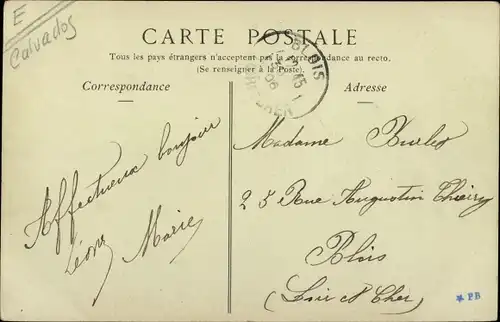 E
Calvados
CARTE POSTALE
Tous les pays étrangers n'acceptent pas la correspondance au recto.
(Se renseigner à la Poste).
BLOIS
LOIR-ET-CHER
Correspondance
Adresse
Affectueux bonjour
Léone Marie
Madame
23 Rue Augustin Thierry
Blois
(Loir et Cher)
* PB